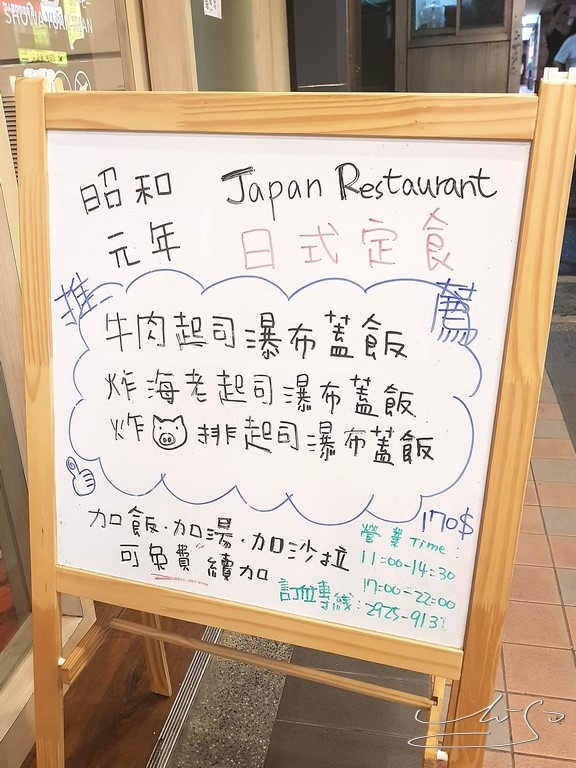 昭和 Japan Restaurant
元年 日式定食
推薦
牛肉起司瀑布蓋飯
炸海老起司瀑布蓋飯
炸排起司瀑布蓋飯
170$
加飯·加湯·加沙拉
可免費續加
營業Time:
11:00-14:30
17:00-22:00
訂位專線: